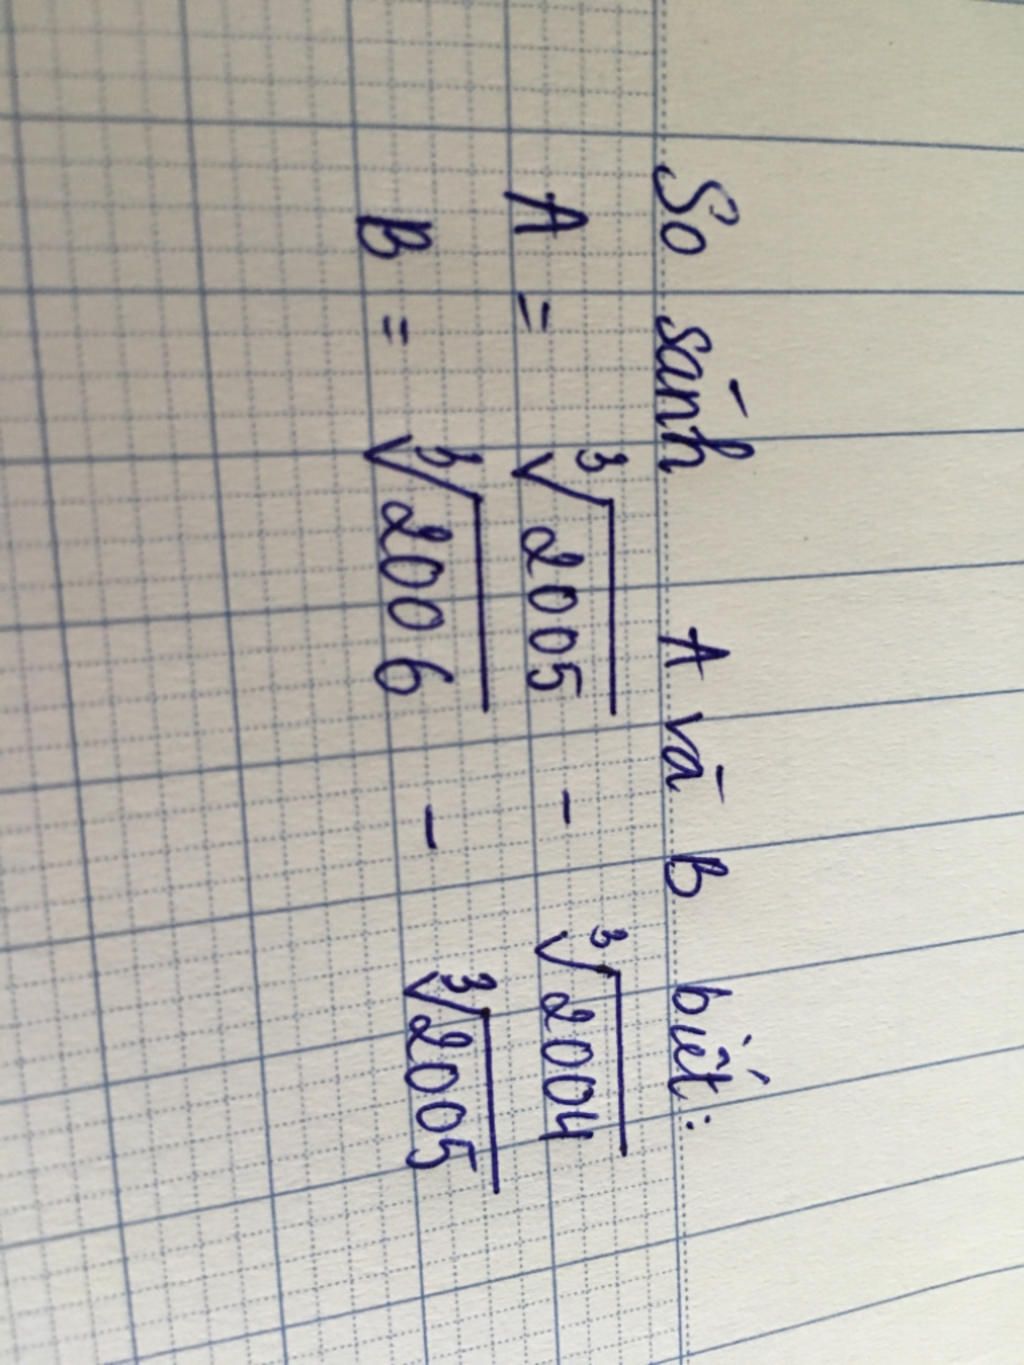 So sánh A và B biết:
A = ∛2005 - ∛2004
B = ∛2006 - ∛2005